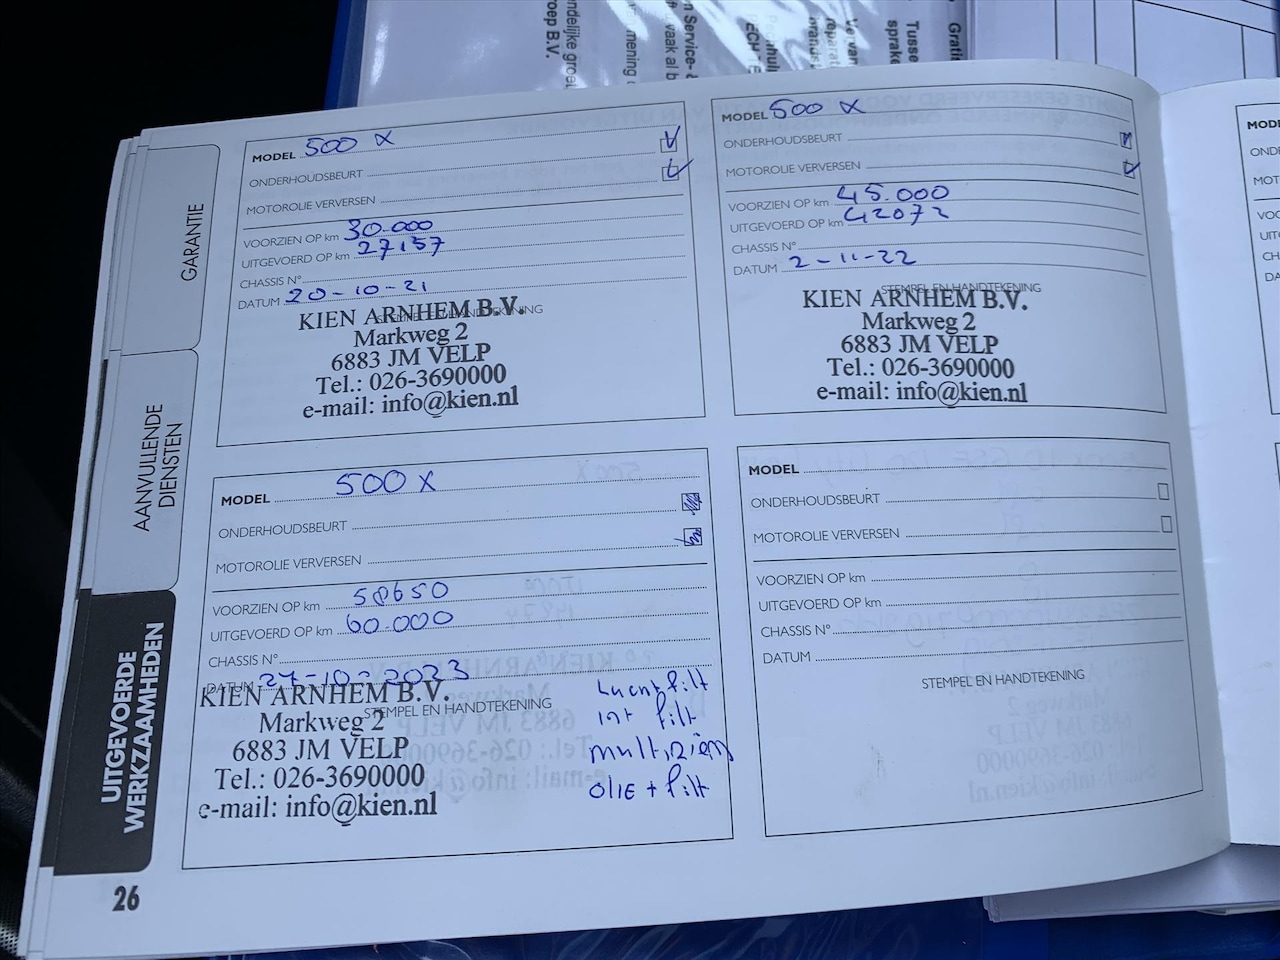 Gratis
Tusse
sprake
Vervan
repara
n Service-
ndelijke groe
roep B.V.
GARANTIE
AANVULLENDE
DIENSTEN
UITGEVOERDE
WERKZAAMHEDEN
26
MODEL 500 X
ONDERHOUDSBEURT
MOTOROLIE VERVERSEN
VOORZIEN OP km 30.000
UITGEVOERD OP km 27157
CHASSIS N°
DATUM 20-10-21
STEMPEL EN HANDTEKENING
KIEN ARNHEM B.V.
Markweg 2
6883 JM VELP
Tel.: 026-3690000
e-mail: info@kien.nl
MODEL 500 X
ONDERHOUDSBEURT
MOTOROLIE VERVERSEN
VOORZIEN OP km 45.000
UITGEVOERD OP km 42072
CHASSIS N°
DATUM 2-11-22
STEMPEL EN HANDTEKENING
KIEN ARNHEM B.V.
Markweg 2
6883 JM VELP
Tel.: 026-3690000
e-mail: info@kien.nl
MODEL 500 X
ONDERHOUDSBEURT
MOTOROLIE VERVERSEN
VOORZIEN OP km 58650
UITGEVOERD OP km 60.000
CHASSIS N°
DATUM 27-10-2023
STEMPEL EN HANDTEKENING
KIEN ARNHEM B.V.
Markweg 2
6883 JM VELP
Tel.: 026-3690000
e-mail: info@kien.nl
Luchtfilt
Int filt
multiriem
olie + filt
MODEL
ONDERHOUDSBEURT
MOTOROLIE VERVERSEN
VOORZIEN OP km
UITGEVOERD OP km
CHASSIS N°
DATUM
STEMPEL EN HANDTEKENING
MODE
OND
MOT
VOO
UIT
CH
DA